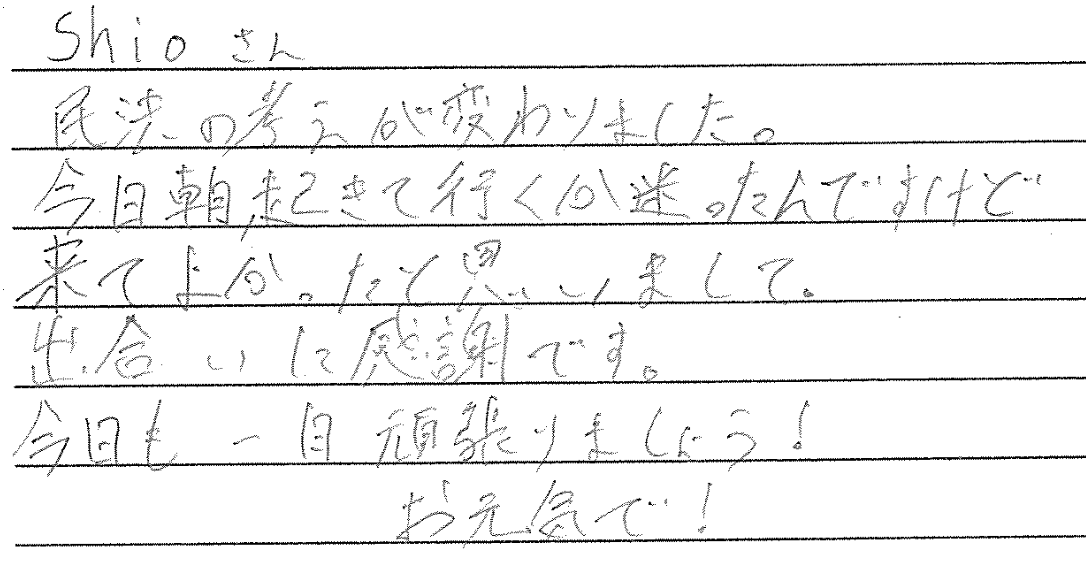 Shio さん
民法の考えが変わりました。
今日朝起きて行くか迷ったんですけど
来てよかったと思いまして。
出合いに感謝です。
今日も一日頑張りましょう！
お元気で！